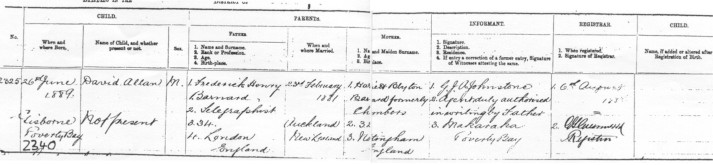 CHILD. PARENTS. INFORMANT. REGISTRAR. CHILD.
No. When and where Born. Name of Child, and whether present or not. Sex.
FATHER.
1. Name and Surname.
2. Rank or Profession.
3. Age.
4. Birth-place.
When and where Married.
MOTHER.
and Maiden Surname.
1. Signature.
2. Description.
3. Residence.
4. If entry a correction of a former entry, Signature of Witnesses attesting the same.
1. When registered.
2. Signature of Registrar.
Name, if added or altered after Registration of Birth.
26th June 1889. David Allan M. 1. Frederick Henry 23rd February 1. Harriett Blyton 1. G. J. A. Johnstone 1. 6th August
Barnard 1881 Barnard formerly 2. Agent duly authorised
2. Telegraphist Chambers in writing by Father
Gisborne Not present 3. 34. Auckland 2. 32 3. Makaraka 2.
Poverty Bay 4. London New Zealand 3. Nottingham Poverty Bay Registrar
2340 England England